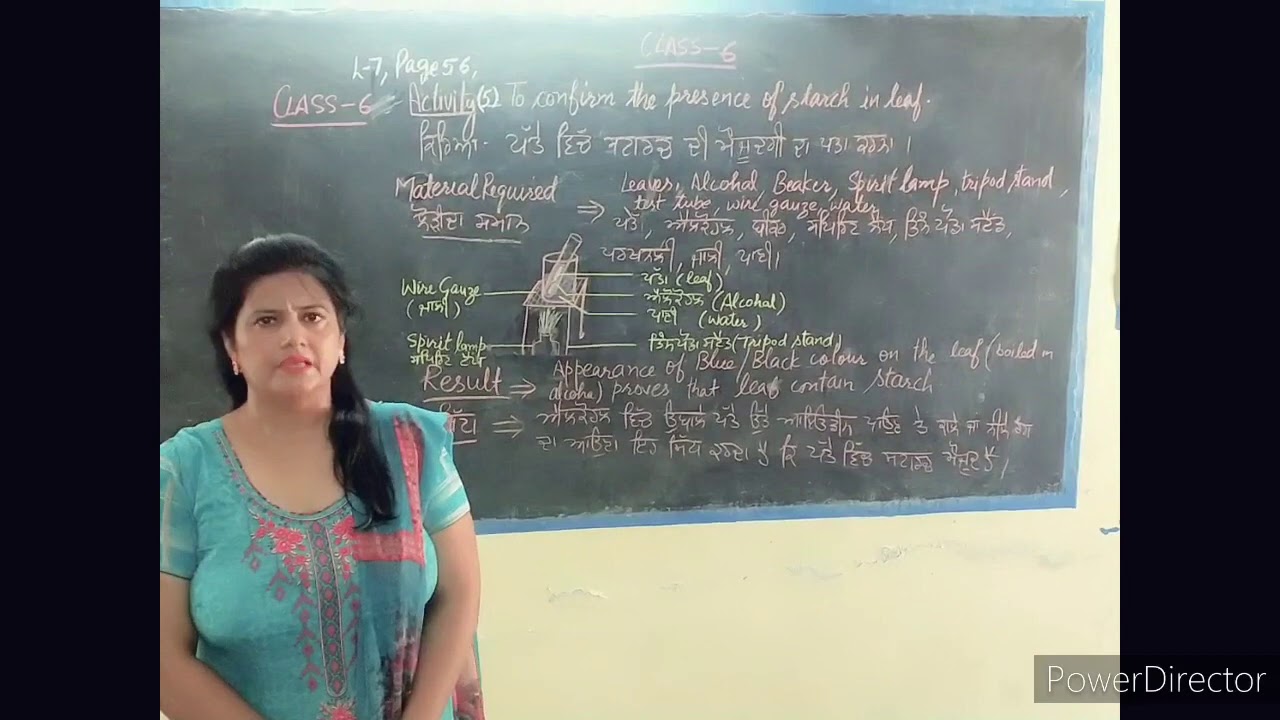 CLASS-6
L-7, Page 56,
CLASS-6 = Activity (5) To confirm the presence of starch in leaf.
ਕਿਰਿਆ- ਪੱਤੇ ਵਿੱਚ ਸਟਾਰਚ ਦੀ ਮੌਜੂਦਗੀ ਦਾ ਪਤਾ ਕਰਨਾ।
Material Required ⇒ Leaves, Alcohal, Beaker, Spirit lamp, tripod stand,
test tube, wire gauze, water
ਲੋੜੀਂਦਾ ਸਮਾਨ ਪੱਤੇ, ਐਲਕੋਹਲ, ਬੀਕਰ, ਸਪਿਰਿਟ ਲੈਂਪ, ਤਿੰਨ ਪੈਰਾ ਸਟੈਂਡ,
ਪਰਖਨਲੀ, ਜਾਲੀ, ਪਾਣੀ।
Wire Gauze
(ਜਾਲੀ)
Spirit lamp
ਸਪਿਰਿਟ ਲੈਂਪ
ਪੱਤਾ (leaf)
ਐਲਕੋਹਲ (Alcohal)
ਪਾਣੀ (Water)
ਤਿੰਨ ਪੈਰਾ ਸਟੈਂਡ (Tripod stand)
Result ⇒ Appearance of Blue/Black colour on the leaf (boiled in
alcohal) proves that leaf contain starch
⇒ ਐਲਕੋਹਲ ਵਿੱਚ ਉਬਾਲੇ ਪੱਤੇ ਉੱਤੇ ਆਇਓਡੀਨ ਪਾਉਣ ਤੇ ਕਾਲੇ ਜਾਂ ਨੀਲੇ ਰੰਗ
ਦਾ ਆਉਣਾ ਇਹ ਸਿੱਧ ਕਰਦਾ ਹੈ ਕਿ ਪੱਤੇ ਵਿੱਚ ਸਟਾਰਚ ਮੌਜੂਦ ਹੈ।
PowerDirector